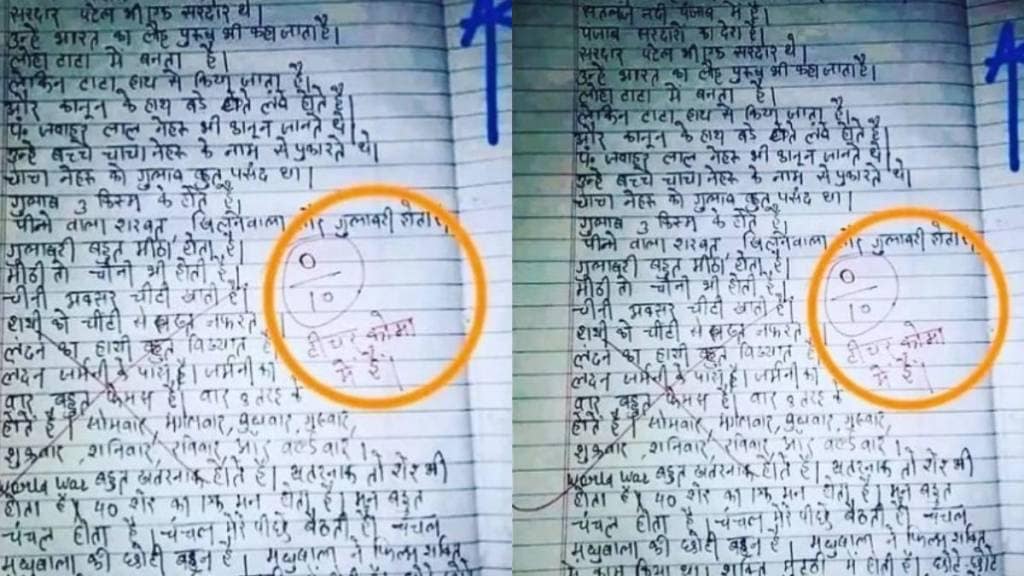 सरदार पटेल भी एक सरदार थे।
उन्हे भारत का लौह पुरुष भी कहा जाता है।
लोहा टाटा में बनता है।
लेकिन टाटा हाथ से किया जाता है।
और कानून के हाथ बडे लंबे होते है।
पं. जवाहर लाल नेहरू भी कानून जानते थे।
उन्हे बच्चे चाचा नेहरू के नाम से पुकारते थे।
चाचा नेहरू को गुलाब बहुत पसंद था।
गुलाब 3 किस्म के होते है।
पीने वाला शरबत, और गुलाबरी होता
गुलाबरी बहुत मीठा होता है।
मीठी तो चीनी भी होती है।
चीनी अक्सर चीटी खाती है।
हाथी को चीटी से सख्त नफरत
लंदन का हाथी बहुत विख्यात है
लंदन जर्मनी के पास है। जर्मनी का
वार बहुत फेमस है। वार 8 तरह के
होते है। सोमवार, मंगलवार, बुधवार, गुरुवार,
शुक्रवार, शनिवार, रविवार और वर्ल्ड वार।
World War बहुत खतरनाक होते है। खतरनाक तो शेर भी
होता है। 40 शेर का एक मन होता है। मन बहुत
चंचल होता है। चंचल मेरे पीछे बैठती है। चंचल
मधुबाला की छोटी बहन है। मधुबाला ने फिल्म शक्ति
0
10
टीचर कोमा
में है।
सतलज नदी पंजाब में है।
पंजाब सरदारो का देश है।
सरदार पटेल भी एक सरदार थे।
उन्हे भारत का लौह पुरुष भी कहा जाता है।
लोहा टाटा में बनता है।
लेकिन टाटा हाथ से किया जाता है।
और कानून के हाथ बडे लंबे होते है।
पं. जवाहर लाल नेहरू भी कानून जानते थे।
उन्हे बच्चे चाचा नेहरू के नाम से पुकारते थे।
चाचा नेहरू को गुलाब बहुत पसंद था।
गुलाब 3 किस्म के होते है।
पीने वाला शरबत, और गुलाबरी होता
गुलाबरी बहुत मीठा होता है।
मीठी तो चीनी भी होती है।
चीनी अक्सर चीटी खाती है।
हाथी को चीटी से सख्त नफरत
लंदन का हाथी बहुत विख्यात है
लंदन जर्मनी के पास है। जर्मनी का
वार बहुत फेमस है। वार 8 तरह के
होते है। सोमवार, मंगलवार, बुधवार, गुरुवार,
शुक्रवार, शनिवार, रविवार और वर्ल्ड वार।
World War बहुत खतरनाक होते है। खतरनाक तो शेर भी
होता है। 40 शेर का एक मन होता है। मन बहुत
चंचल होता है। चंचल मेरे पीछे बैठती है। चंचल
मधुबाला की छोटी बहन है। मधुबाला ने फिल्म शक्ति
में काम किया था। शक्ति मुट्ठी में होती है।
0
10
टीचर कोमा
में है।